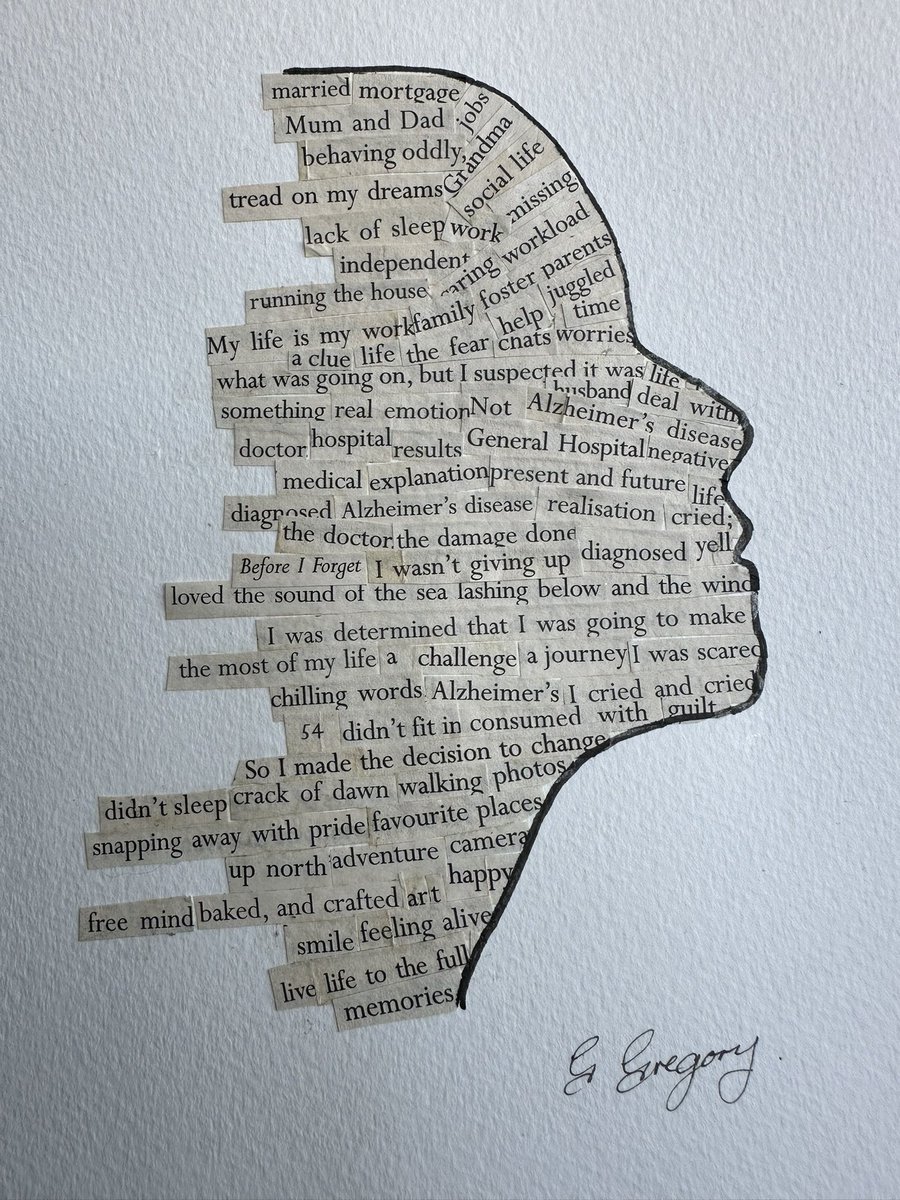 married mortgage jobs
Mum and Dad Grandma
behaving oddly, social life
tread on my dreams missing
lack of sleep work workload
independent
running the house family foster parents juggled
My life is my work help time
a clue life the fear chats worries
what was going on, but I suspected it was life
husband deal with
something real emotion Not Alzheimer's disease
doctor hospital results General Hospital negative
medical explanation present and future life
diagnosed Alzheimer's disease realisation cried;
the doctor the damage done
Before I Forget I wasn't giving up diagnosed yell
loved the sound of the sea lashing below and the wind
I was determined that I was going to make
the most of my life a challenge a journey I was scared
chilling words Alzheimer's I cried and cried
54 didn't fit in consumed with guilt
So I made the decision to change
didn't sleep crack of dawn walking photos
snapping away with pride favourite places
up north adventure camera
free mind baked, and crafted art happy
smile feeling alive
live life to the full
memories
G Gregory